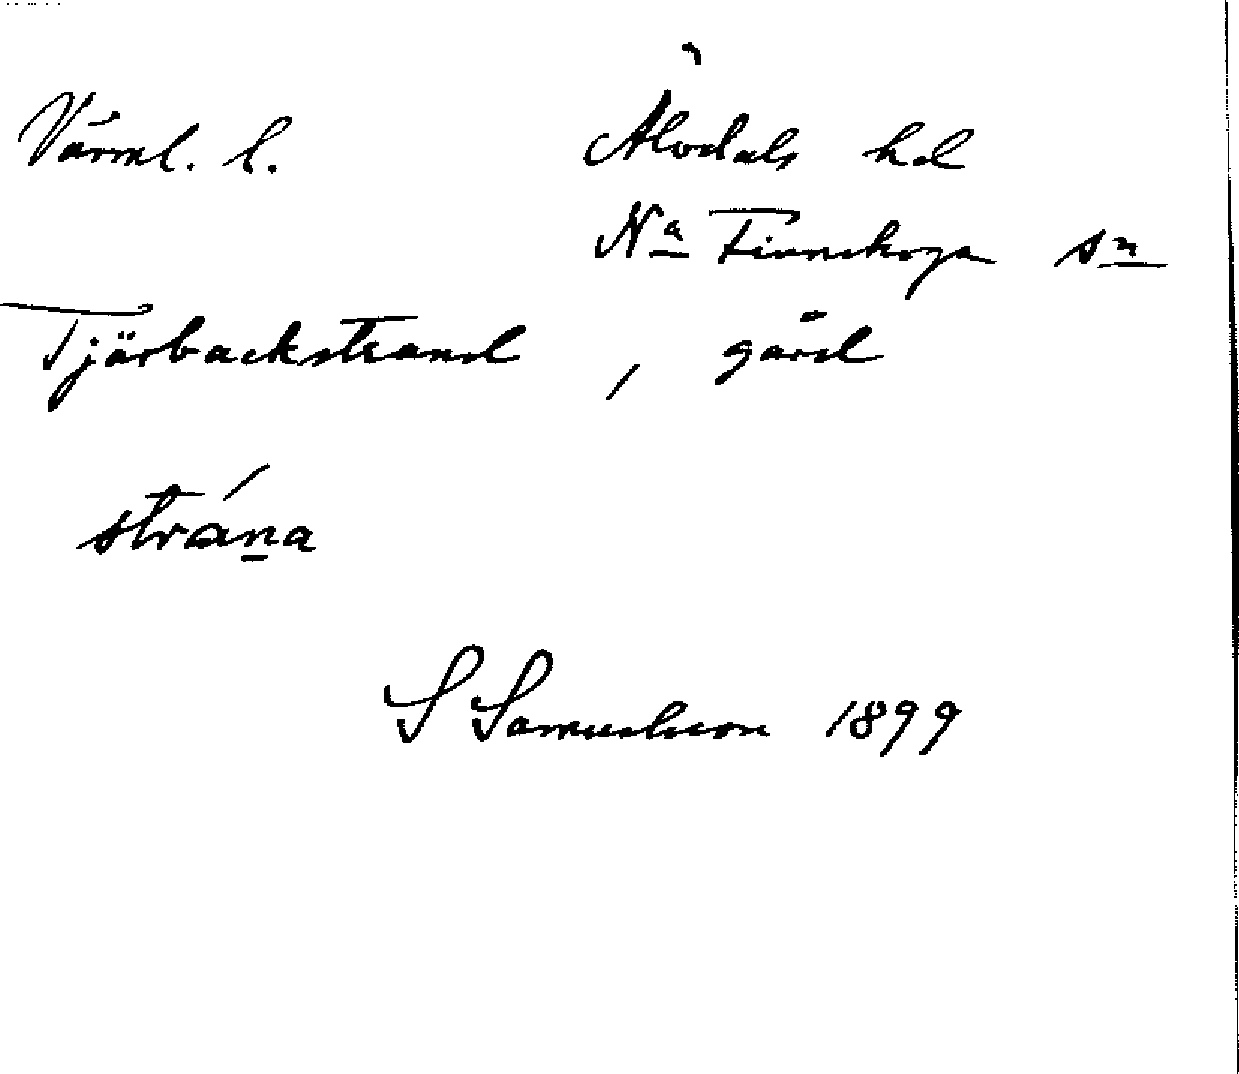 Värml. l. Älvdals hd
Na Finnskoga sn
Tjärbackstrand, gård
strána
S Samuelsson 1899